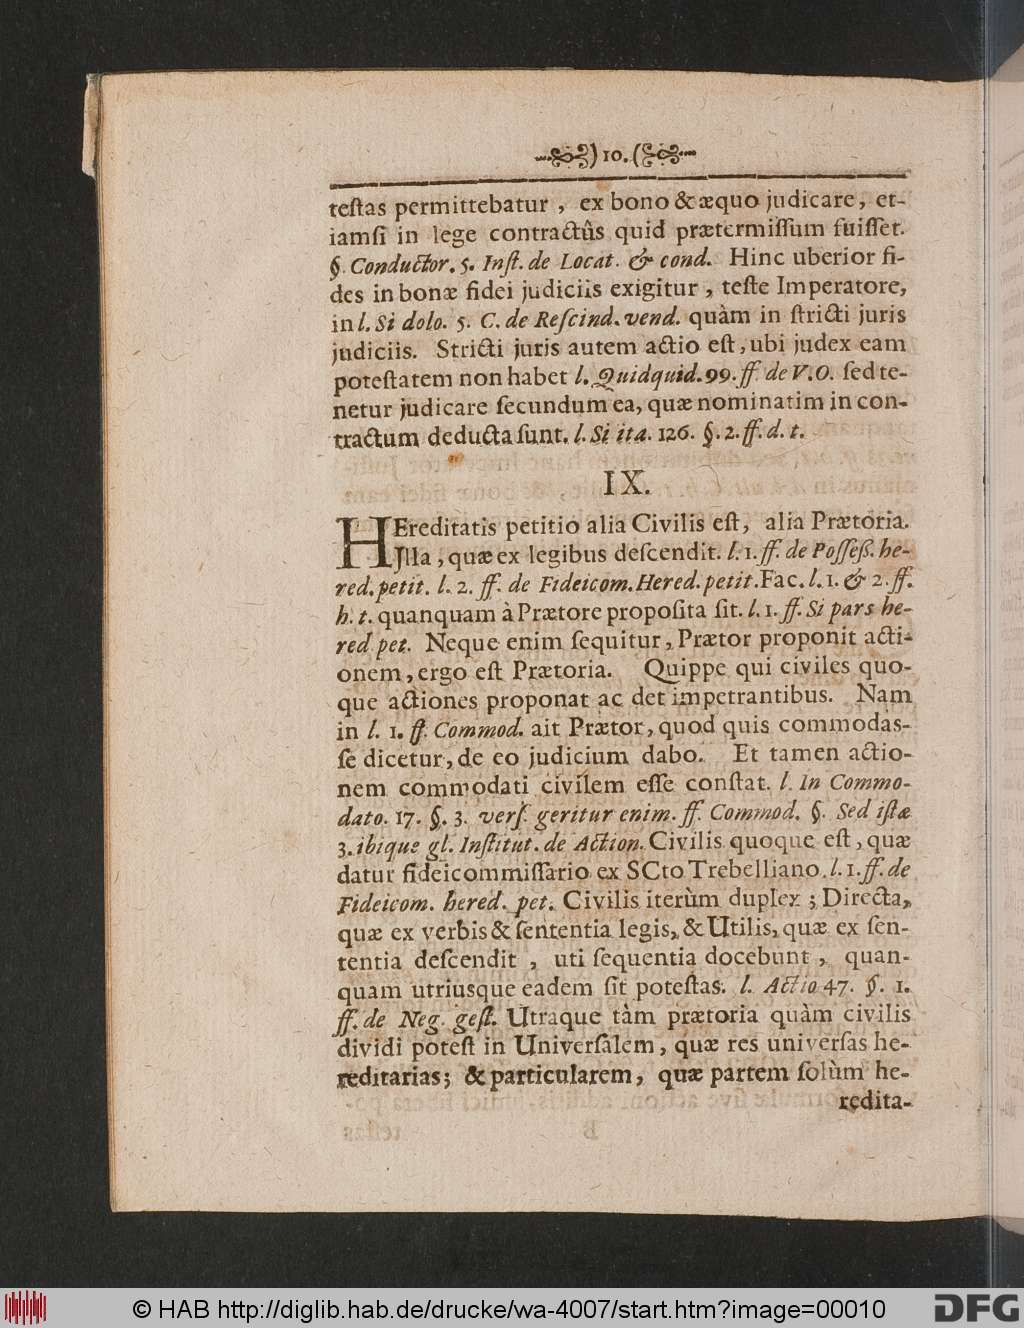 ) 10. (
teſtas permittebatur, ex bono & æquo judicare, et-
iamſi in lege contractûs quid prætermiſſum fuiſſet.
§. Conductor. 5. Inſt. de Locat. & cond. Hinc uberior fi-
des in bonæ fidei judiciis exigitur, teſte Imperatore,
in l. Si dolo. 5. C. de Reſcind. vend. quàm in ſtricti juris
judiciis. Stricti juris autem actio eſt, ubi judex eam
poteſtatem non habet l. Quidquid. 99. ff. de V.O. ſed te-
netur judicare ſecundum ea, quæ nominatim in con-
tractum deducta ſunt. l. Si ita. 126. §. 2. ff. d. t.
IX.
HEreditatis petitio alia Civilis eſt, alia Prætoria.
Jlla, quæ ex legibus deſcendit. l. 1. ff. de Poſſeſſ. he-
red. petit. l. 2. ff. de Fideicom. Hered. petit. Fac. l. 1. & 2. ff.
h. t. quanquam à Prætore propoſita ſit. l. 1. ff. Si pars he-
red pet. Neque enim ſequitur, Prætor proponit acti-
onem, ergo eſt Prætoria. Quippe qui civiles quo-
que actiones proponat ac det impetrantibus. Nam
in l. 1. ff. Commod. ait Prætor, quod quis commodas-
ſe dicetur, de eo judicium dabo. Et tamen actio-
nem commodati civilem eſſe conſtat. l. In Commo-
dato. 17. §. 3. verſ. geritur enim. ff. Commod. §. Sed iſtæ
3. ibique gl. Inſtitut. de Action. Civilis quoque eſt, quæ
datur fideicommiſſario ex SCto Trebelliano. l. 1. ff. de
Fideicom. hered. pet. Civilis iterùm duplex; Directa,
quæ ex verbis & ſententia legis, & Utilis, quæ ex ſen-
tentia deſcendit, uti ſequentia docebunt, quan-
quam utriusque eadem ſit poteſtas. l. Actio 47. §. 1.
ff. de Neg. geſt. Utraque tàm prætoria quàm civilis
dividi poteſt in Univerſalem, quæ res univerſas he-
reditarias; & particularem, quæ partem ſolùm he-
redita-
© HAB http://diglib.hab.de/drucke/wa-4007/start.htm?image=00010
DFG